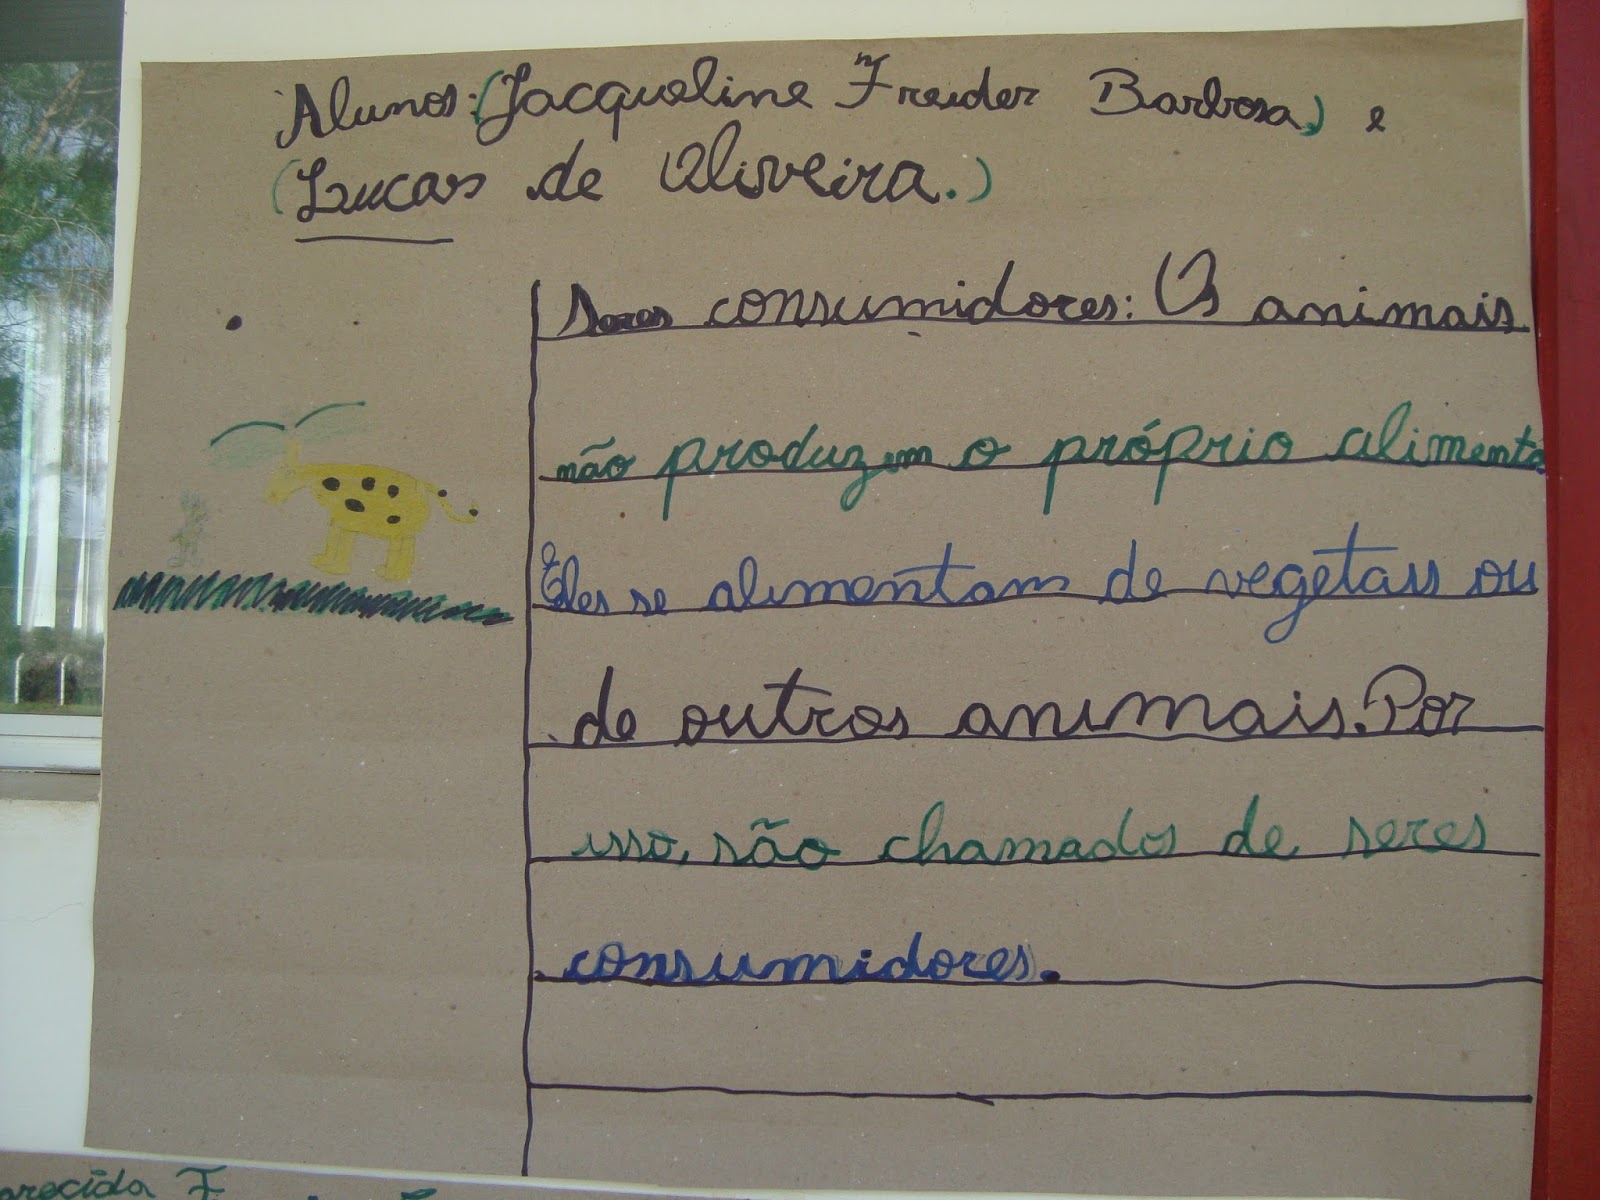 Alunos: (Jacqueline Freider Barbosa,) e
(Lucas de Oliveira.)
Seres consumidores: Os animais
não produzem o próprio alimento.
Eles se alimentam de vegetais ou
de outros animais. Por
isso, são chamados de seres
consumidores.
arecida F